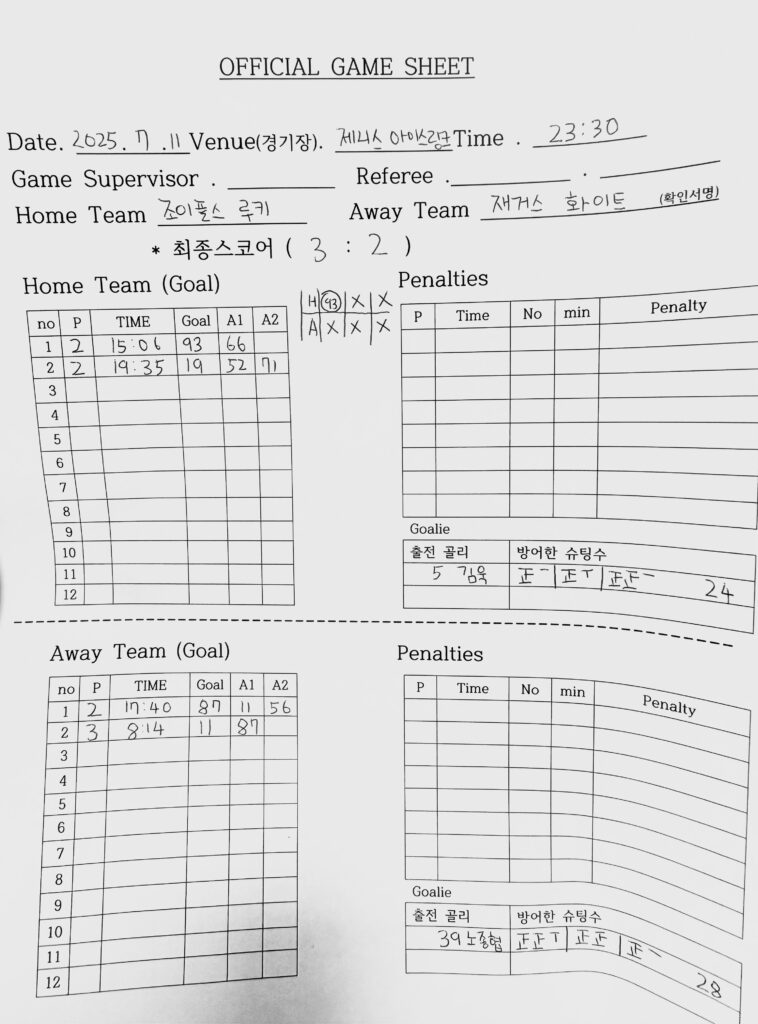 OFFICIAL GAME SHEET
Date. 2025. 7. 11 Venue(경기장). 제니스 아이스링크 Time . 23:30
Game Supervisor . Referee . .
Home Team 조이풀스 루키 Away Team 재거스 화이트 (확인서명)
* 최종스코어 ( 3 : 2 )
Home Team (Goal)
H 93 X X
A X X X
no P TIME Goal A1 A2
1 2 15:06 93 66
2 2 19:35 19 52 71
3
4
5
6
7
8
9
10
11
12
Penalties
P Time No min Penalty
Goalie
출전 골리 방어한 슈팅수
5 김욱 正一 | 正丅 | 正正一 24
Away Team (Goal)
no P TIME Goal A1 A2
1 2 17:40 87 11 56
2 3 8:14 11 87
3
4
5
6
7
8
9
10
11
12
Penalties
P Time No min Penalty
Goalie
출전 골리 방어한 슈팅수
39 노종협 正正丅 | 正正 | 正一 28